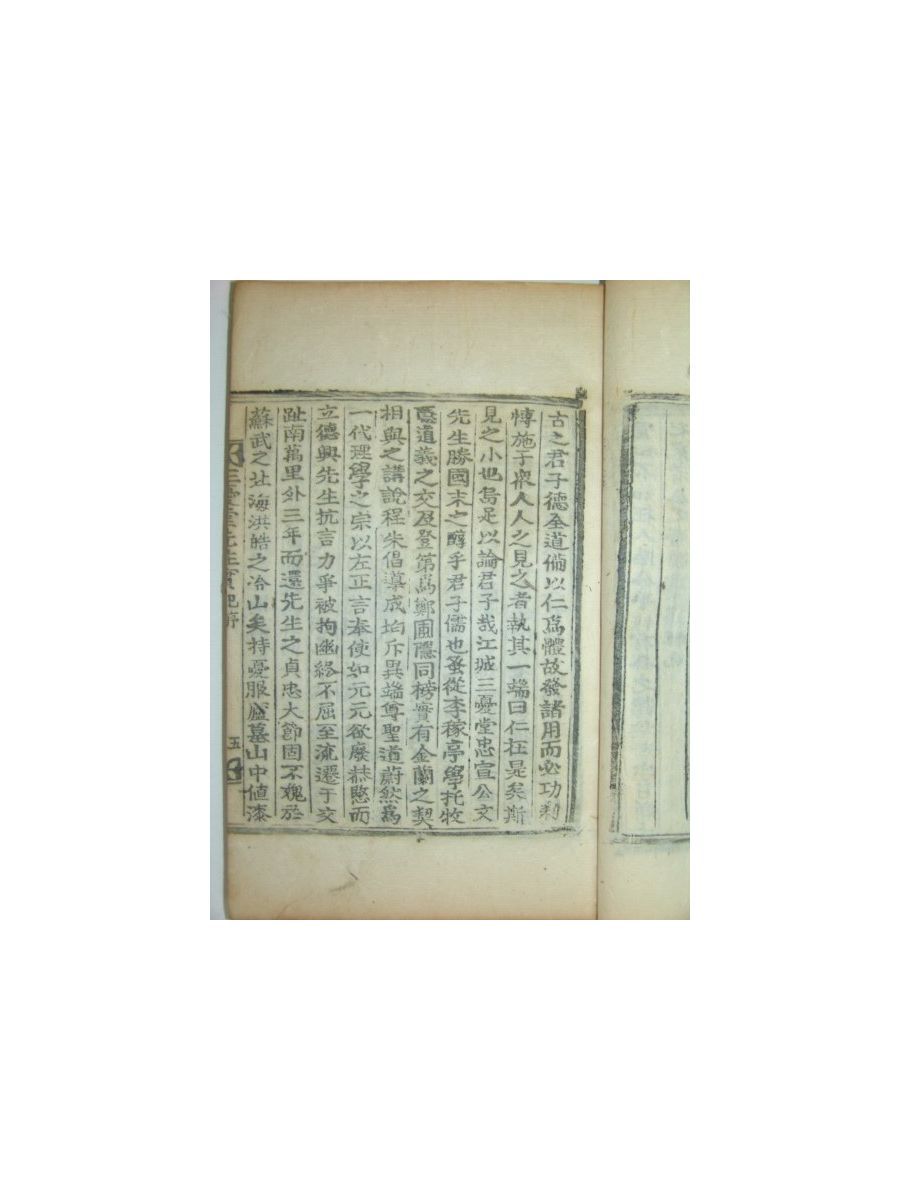 古之君子德全道備以仁爲體故發諸用而必功利
博施于衆人人之見之者執其一端曰仁在是矣斯
見之小也烏足以論君子哉江城三憂堂忠宣公文
先生勝國末之醇乎君子儒也蚤從李稼亭學托牧
隱道義之交及登第爲鄭圃隱同榜實有金蘭之契
相與之講說程朱倡導成均斥異端尊聖道蔚然爲
一代理學之宗以左正言奉使如元元欲廢恭愍而
立德興先生抗言力爭被拘幽絡不屈至流遷于交
趾南萬里外三年而還先生之貞忠大節固不媿於
蘇武之北海洪皓之冷山矣持憂服廬墓山中値漆
三憂堂先生實紀序
五